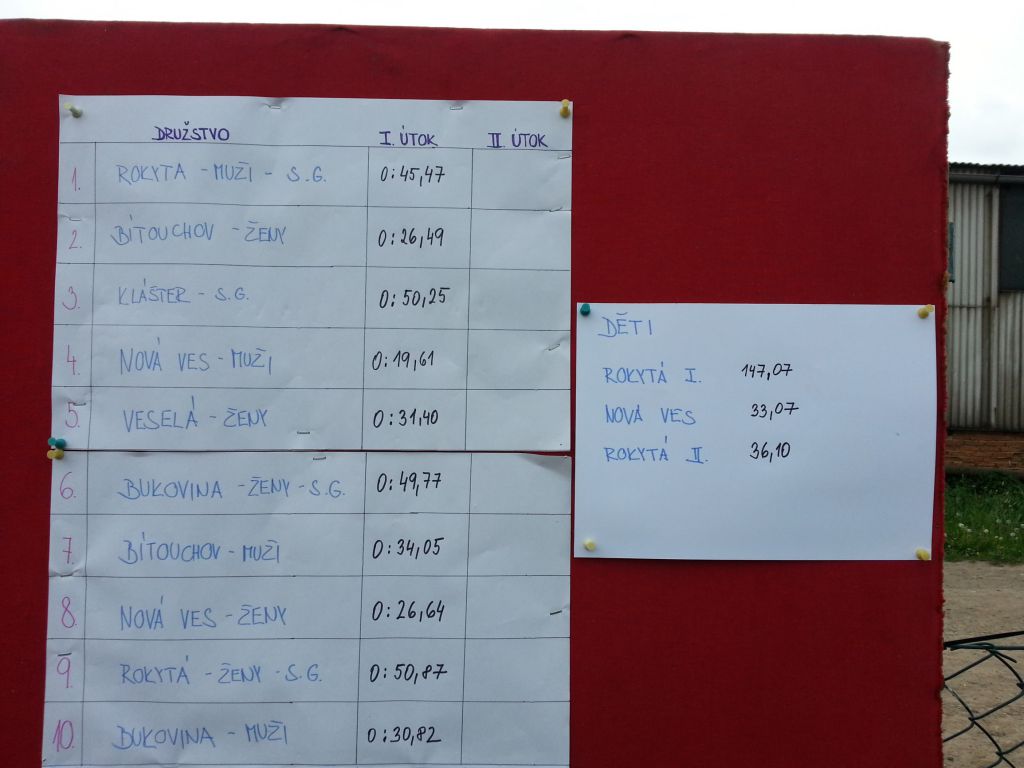 DRUŽSTVO I. ÚTOK II ÚTOK
1. ROKYTA - MUŽI - S.G. 0:45,47
2. BÍTOUCHOV - ŽENY 0:26,49
3. KLÁŠTER - S.G. 0:50,25
4. NOVÁ VES - MUŽI 0:19,61
5. VESELÁ - ŽENY 0:31,40
6. BUKOVINA - ŽENY - S.G. 0:49,77
7. BÍTOUCHOV - MUŽI 0:34,05
8. NOVÁ VES - ŽENY 0:26,64
9. ROKYTÁ - ŽENY - S.G. 0:50,87
10. BUKOVINA - MUŽI 0:30,82
DĚTI
ROKYTÁ I. 147,07
NOVÁ VES 33,07
ROKYTÁ II. 36,10